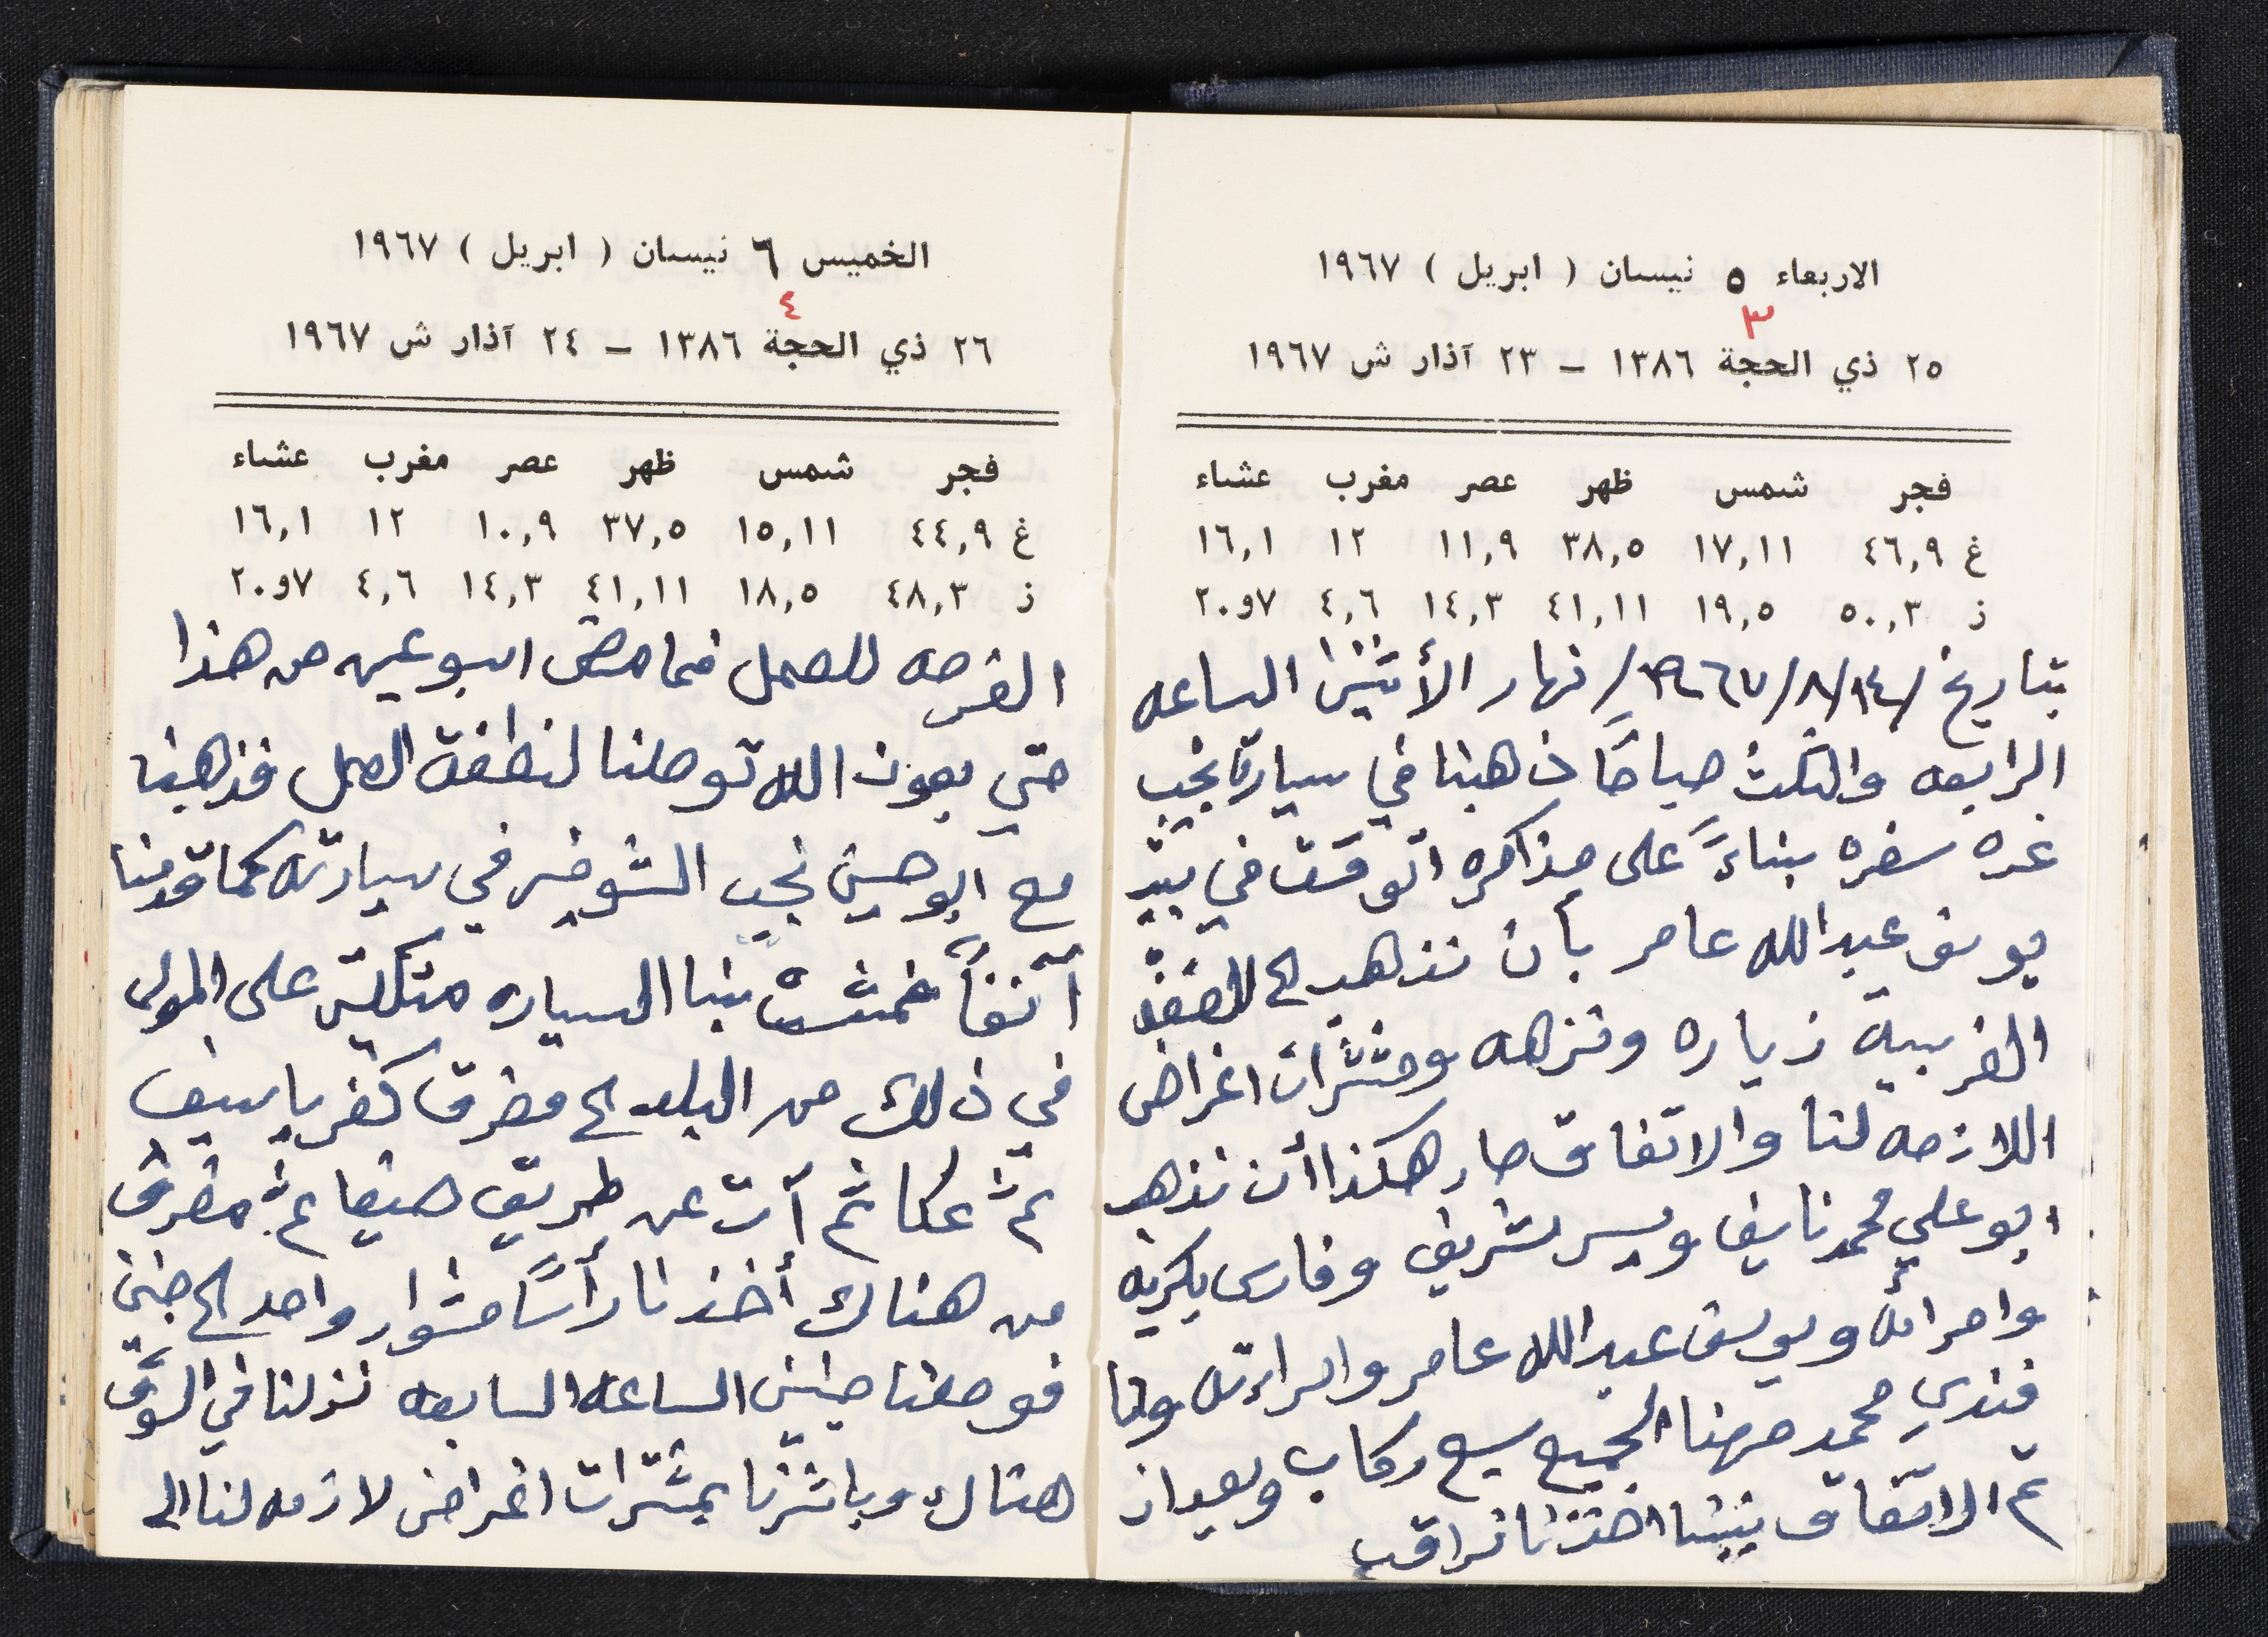 الاربعاء ٥ نيسان ( ابريل ) ١٩٦٧
٣
٢٥ ذي الحجة ١٣٨٦ – ٢٣ آذار ش ١٩٦٧
فجر شمس ظهر عصر مغرب عشاء
غ ٤٦,٩ ١٧,١١ ٣٨,٥ ١١,٩ ١٢ ١٦,١
ز ٥٠,٣ ١٩,٥ ٤١,١١ ١٤,٣ ٤,٦ ٧و٢٠
بتاريخ /١٤/٨/١٩٦٧/ نهار الأثنين الساعه
الرابعه والثلث صباحًا ذهبنا في سيارة نجيب
غره سفره بناءً على مذاكره اتوقعت في بيت
يوسف عبدالله عامر بأن نذهب الى الضفة
الغربية زياره ونزهه ومشترات اغراض
اللازمه لنا والاتفاق صار هكذا أن نذهب
ابو علي محمد نايف ويسر شريف وفارس بكريه
وامرأته ويوسف عبدالله عامر وامرأته وانا
فندي محمد مهنا الجميع سبع ركاب وبعد ان
تم الاتفاق بيننا اخذنا نراقب
الخميس ٦ نيسان ( ابريل ) ١٩٦٧
٤
٢٦ ذي الحجة ١٣٨٦ – ٢٤ آذار ش ١٩٦٧
فجر شمس ظهر عصر مغرب عشاء
غ ٤٤,٩ ١٥,١١ ٣٧,٥ ١٠,٩ ١٢ ١٦,١
ز ٤٨,٣ ١٨,٥ ٤١,١١ ١٤,٣ ٤,٦ ٧و٢٠
الفرصه للعمل فما مضى اسبوعين من هذا
حتى بعون الله توصلنا لنطفة العمل فذهبنا
مع ابو حسين نجيب الشوفير في سيارته كما قدمنا
آنفاً فمشت بنا السياره متكلين على المولى
في ذلك من البلد الى مفرق كفرياسيف
ثم عكا ثم آت عن طريق حيفا ثم مفرق
من هناك أخذنا رأسًا مشوار واحد الى جنين
فوصلنا جنين الساعه السابعه نزلنا في السوق
هناك وباشرنا بمشترات اغراض لازمه لنا الى